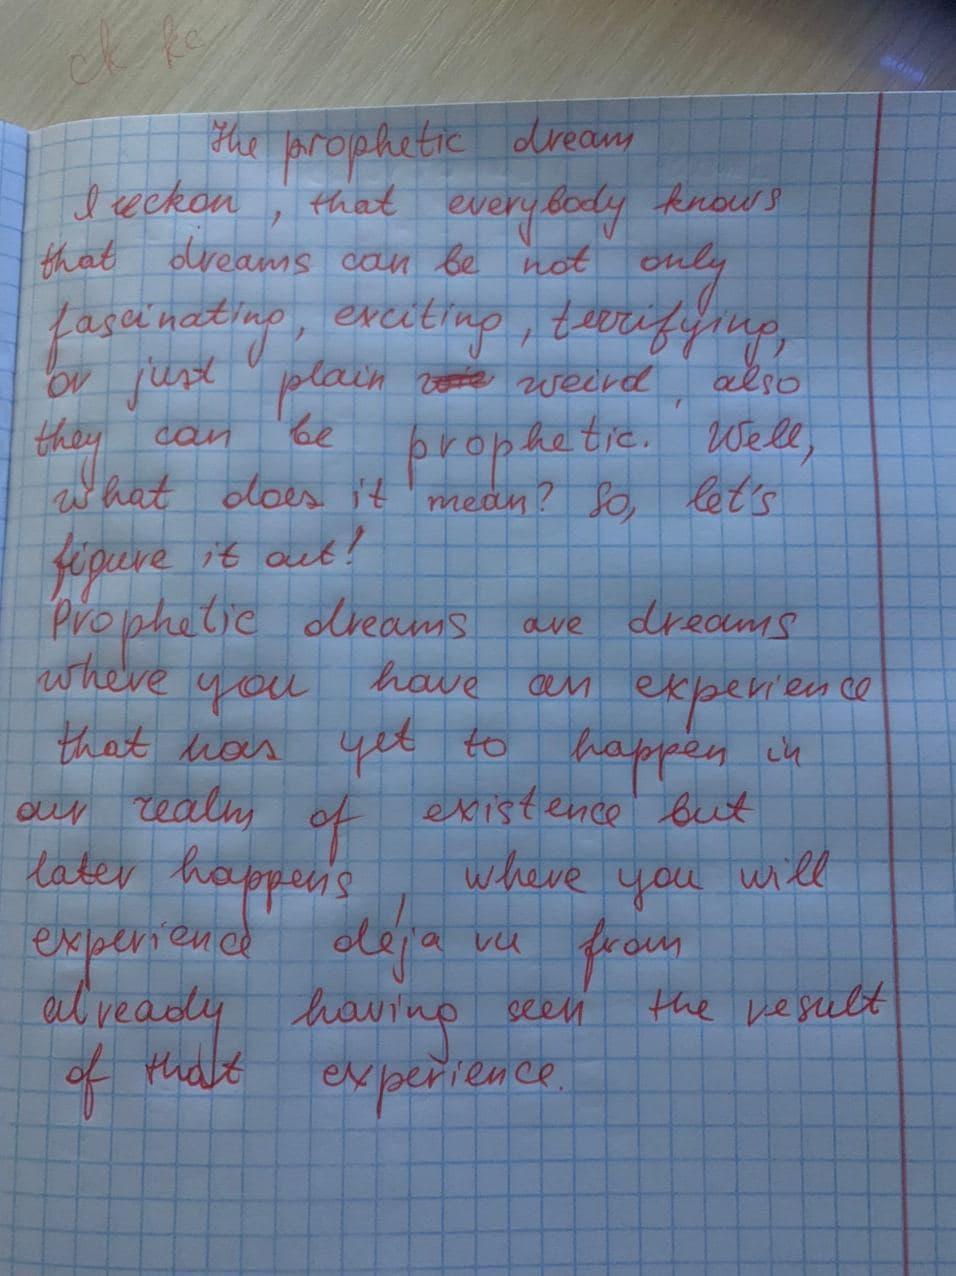 ck
The prophetic dream
I reckon, that everybody knows
that dreams can be not only
fascinating, exciting, terrifying,
or just plain weird, also
they can be prophetic. Well,
what does it mean? So, let's
figure it out!
Prophetic dreams are dreams
where you have an experience
that has yet to happen in
our realm of existence but
later happens, where you will
experience déja vu from
already having seen the result
of that experience.